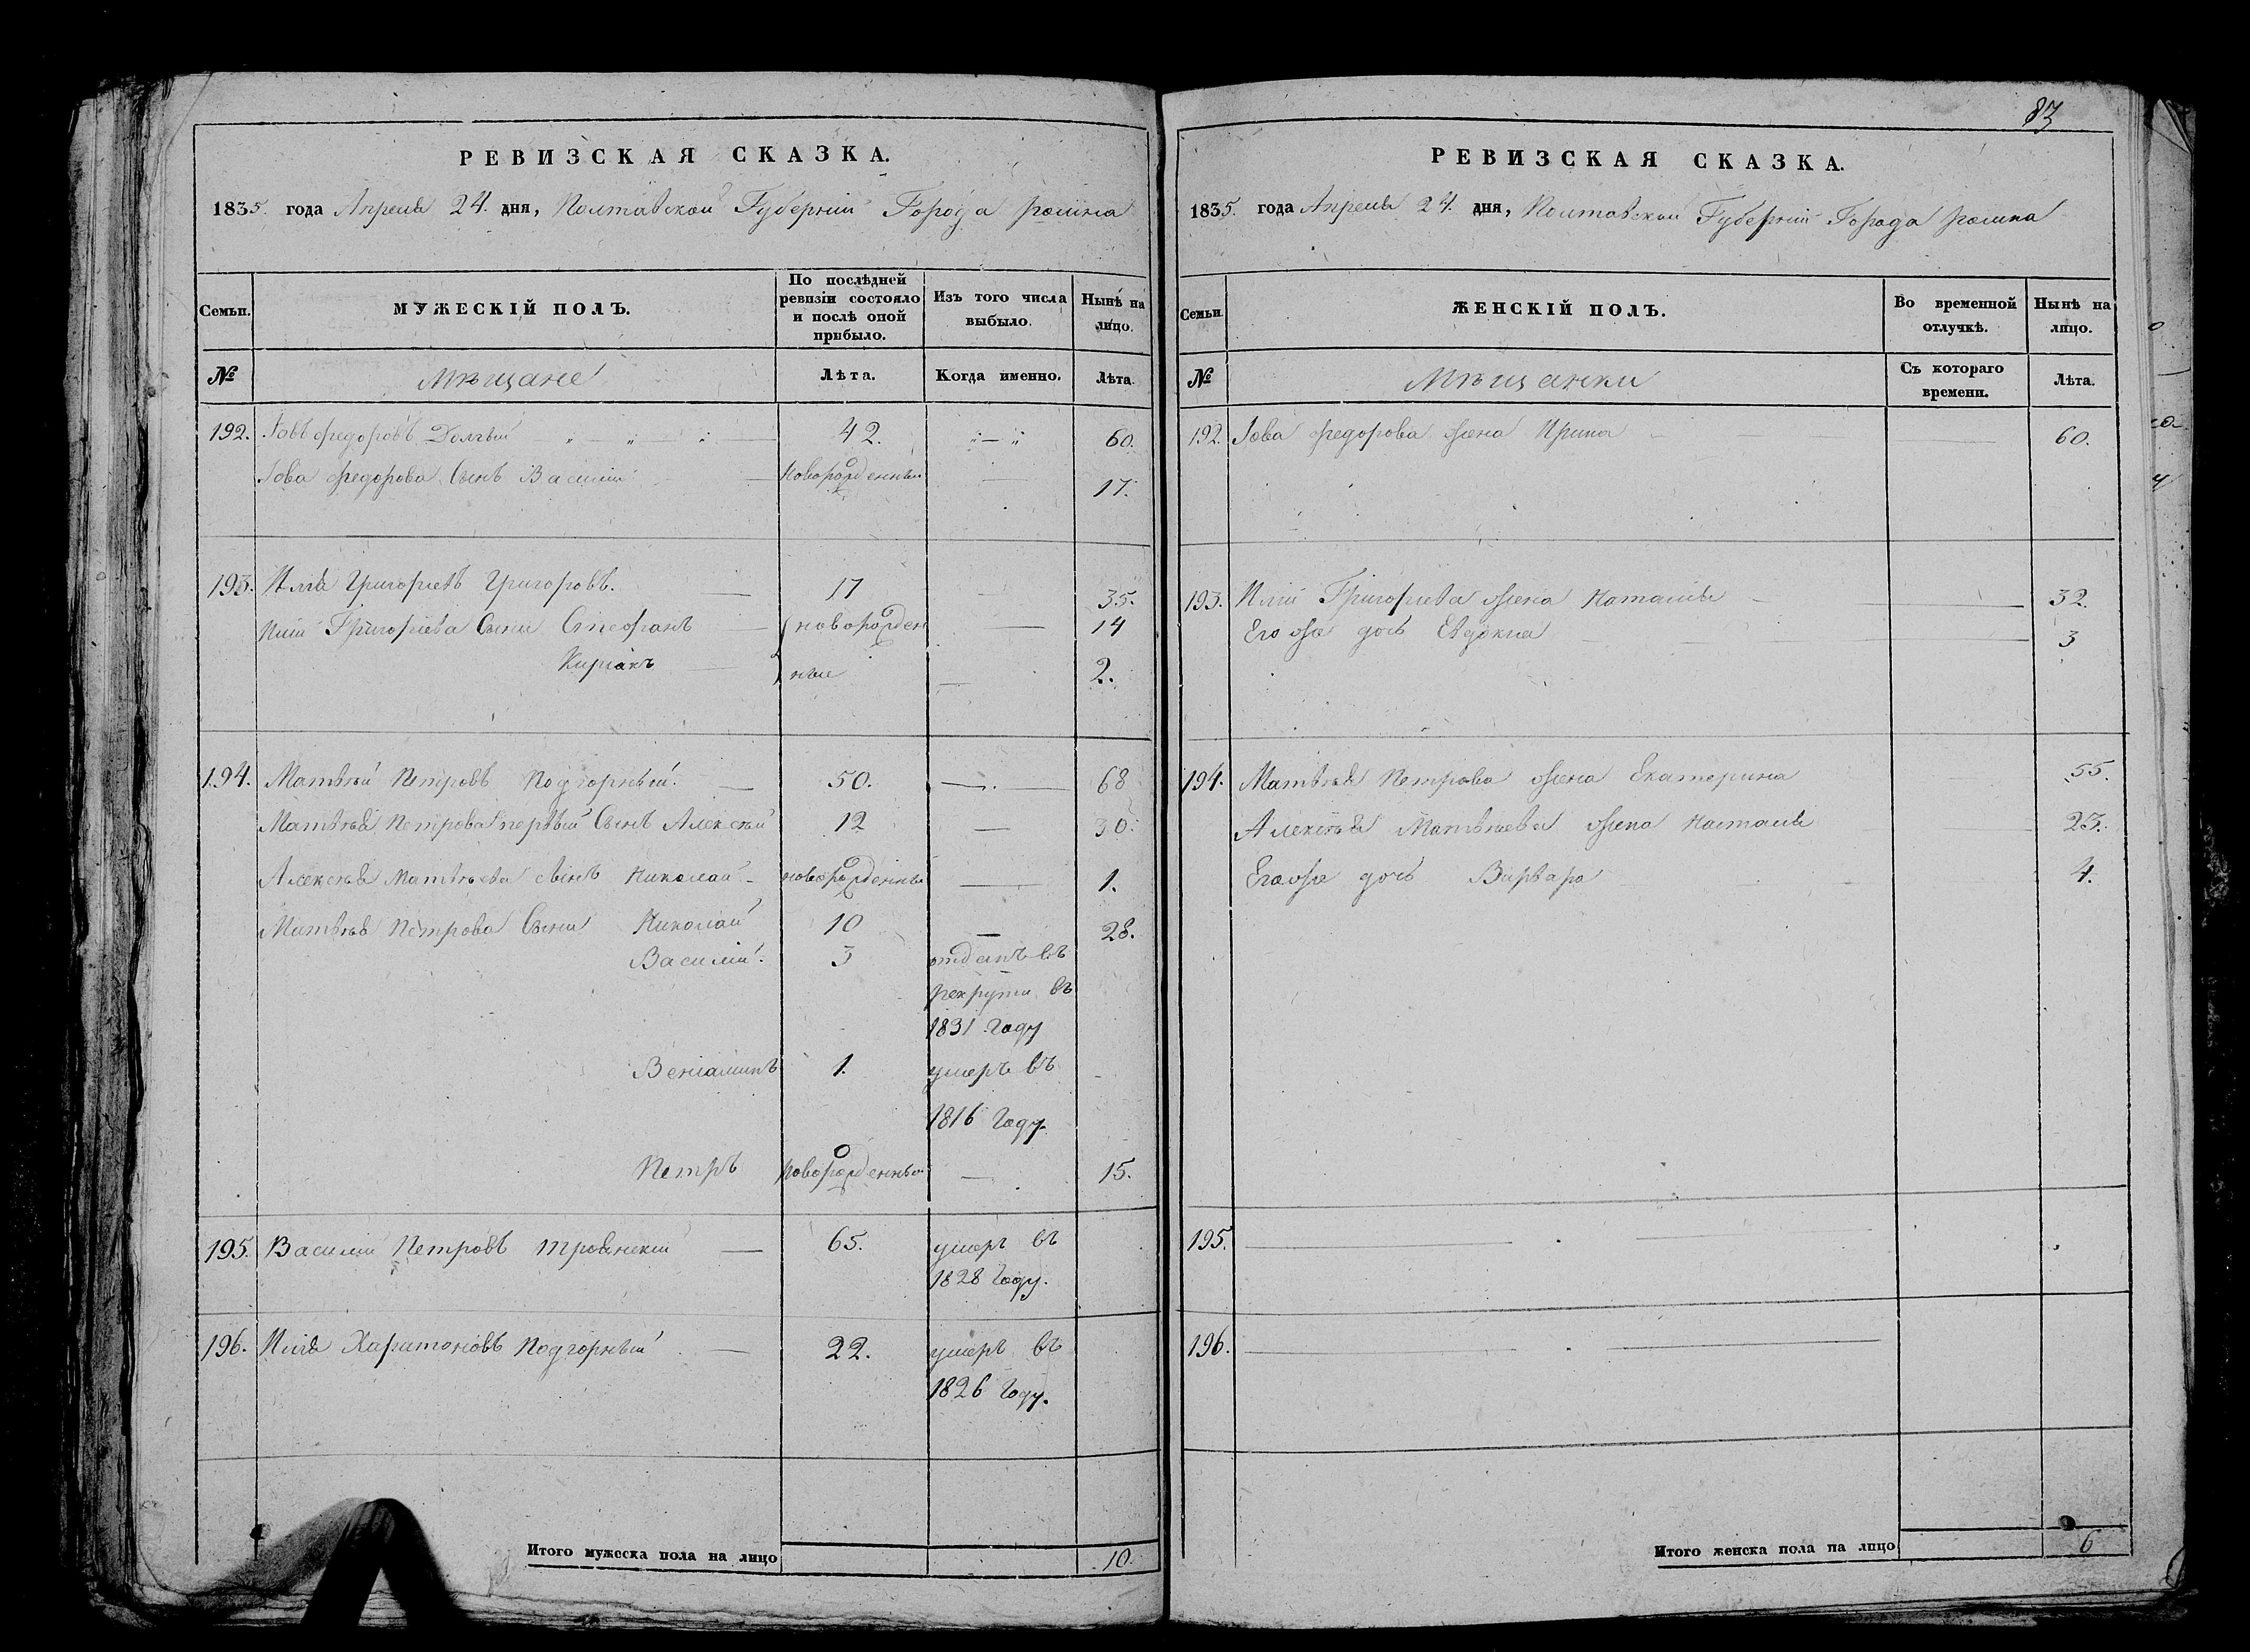 РЕВИЗСКАЯ СКАЗКА.
1835. года Апреля 24. дня, Полтавской Губерніи Города ромна
Семьи. МУЖЕСКІЙ ПОЛЪ. По послѣдней ревизіи состояло и послѣ оной прибыло. Изъ того числа выбыло. Нынѣ на лицо.
№ Мѣщане Лѣта. Когда именно. Лѣта.
192. Іовъ Федоровъ Долгий — „ — „ — „ — 42. „ — „ 60.
Іова Федорова Сынъ Василій — Новорожденный — 17.
193. Илья Григорьевъ Григоровъ. — 17 — 35.
Ильи Григорьева Сыны Стефанъ — новорожден — 14
Киріакъ — ные — 2.
194. Матвѣй Петровъ Подгорный. — 50. — 68
Матвѣя Петрова первый Сынъ Алексѣй 12 — 30.
Алексѣя Матвѣева сынъ Николай — новорожденный — 1.
Матвѣя Петрова Сыны Николай 10 — 28.
Василій. 3 отданъ въ
рекруты въ
1831 Году
Веніаминъ 1. умеръ въ
1816 Году.
Петръ Новорожденный — 15.
195. Василій Петровъ Троянскій — 65. умеръ въ
1828 Году.
196. Илія Харитоновъ Подгорный — 22. умеръ въ
1826 Году.
Итого мужеска пола на лицо 10.
83
РЕВИЗСКАЯ СКАЗКА.
1835. года Апреля 24. дня, Полтавской Губерніи Города ромна
Семьи. ЖЕНСКІЙ ПОЛЪ. Во временной отлучкѣ. Нынѣ на лицо.
№ Мѣщанки Съ котораго времени. Лѣта.
192. Іова Федорова жена Ирина — 60.
193. Ильи Григорьева жена Наталья — 32.
Его же дочь Евдокия — 3
194. Матвѣя Петрова жена Екатерина 55.
Алексѣя Матвѣева жена Наталья 23.
Его же дочь Варвара 4.
195. —
196. —
Итого женска пола на лицо 6